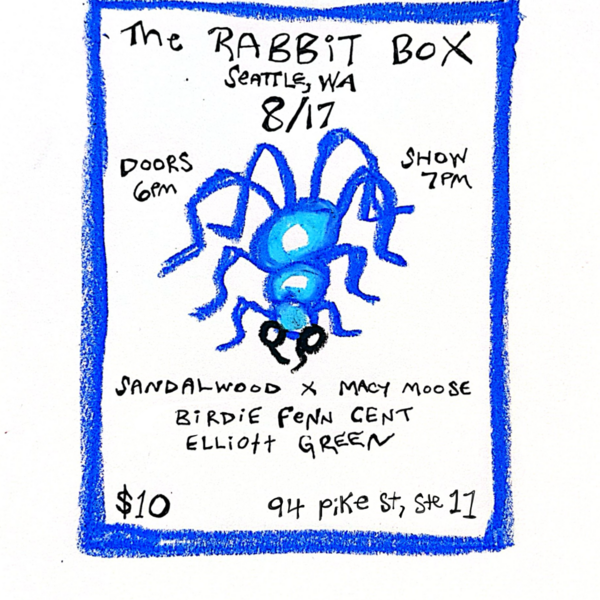 The RABBiT BOX
SEATTLE, WA
8/17
DOORS
6PM
SHOW
7PM
SANDALWOOD X MACY MOOSE
BiRDiE FeNN CENT
ELLiOtt GREEN
$10
94 PiKe St, Ste 11